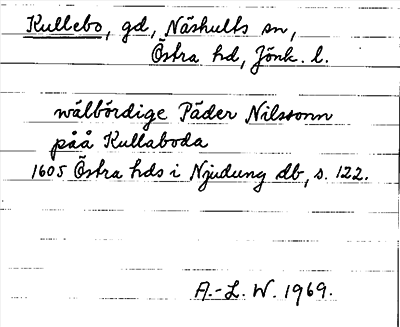 Kullebo, gd, Näshults sn,
Östra hd, Jönk. l.
wälbördige Päder Nilssonn
påå Kullaboda
1605 Östra hds i Njudung db, s. 122.
A.-L. W. 1969.